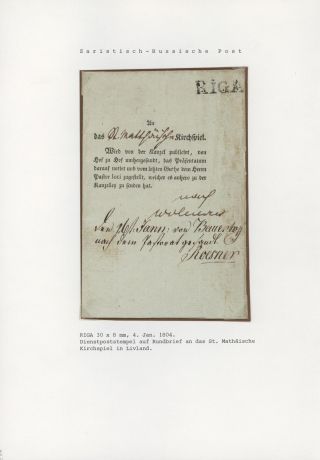 Saristisch-Russische Post
RIGA
An
das St. Matthäische Kirchspiel.
Wird von der Kanzel publicirt, von
Hof zu Hof umhergesandt, das Präsentatum
darauf notirt und vom letzten Gute dem Herrn
Pastor loci zugestellt, welcher es anhero zu der
Kanzelley zu senden hat.
nach
Wolmar
Den 26st Jann: von
nach dem Pastorat gesandt
Roesner
RIGA 30 x 8 mm, 4. Jan. 1804.
Dienstpoststempel auf Rundbrief an das St. Mathäische
Kirchspiel in Livland.